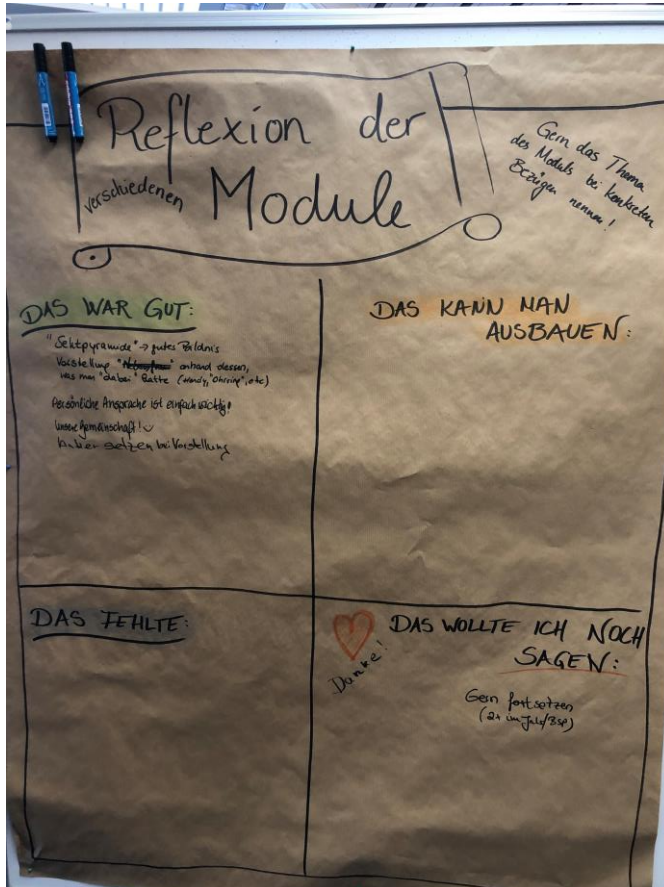 Reflexion der
verschiedenen Module
Gern das Thema
des Moduls bei konkreten
Bezügen nennen!
DAS WAR GUT:
"Sektpyramide" → gutes Bildnis
Vorstellung anhand dessen,
was man "dabei" hatte (Handy, "Ohrring", etc)
Persönliche Ansprache ist einfach wichtig!
Unsere Gemeinschaft!
setzen bei Vorstellung
DAS KANN MAN
AUSBAUEN:
DAS FEHLTE:
DAS WOLLTE ICH NOCH
SAGEN:
Danke!
Gern fortsetzen
(2x im Jahr/Bsp)